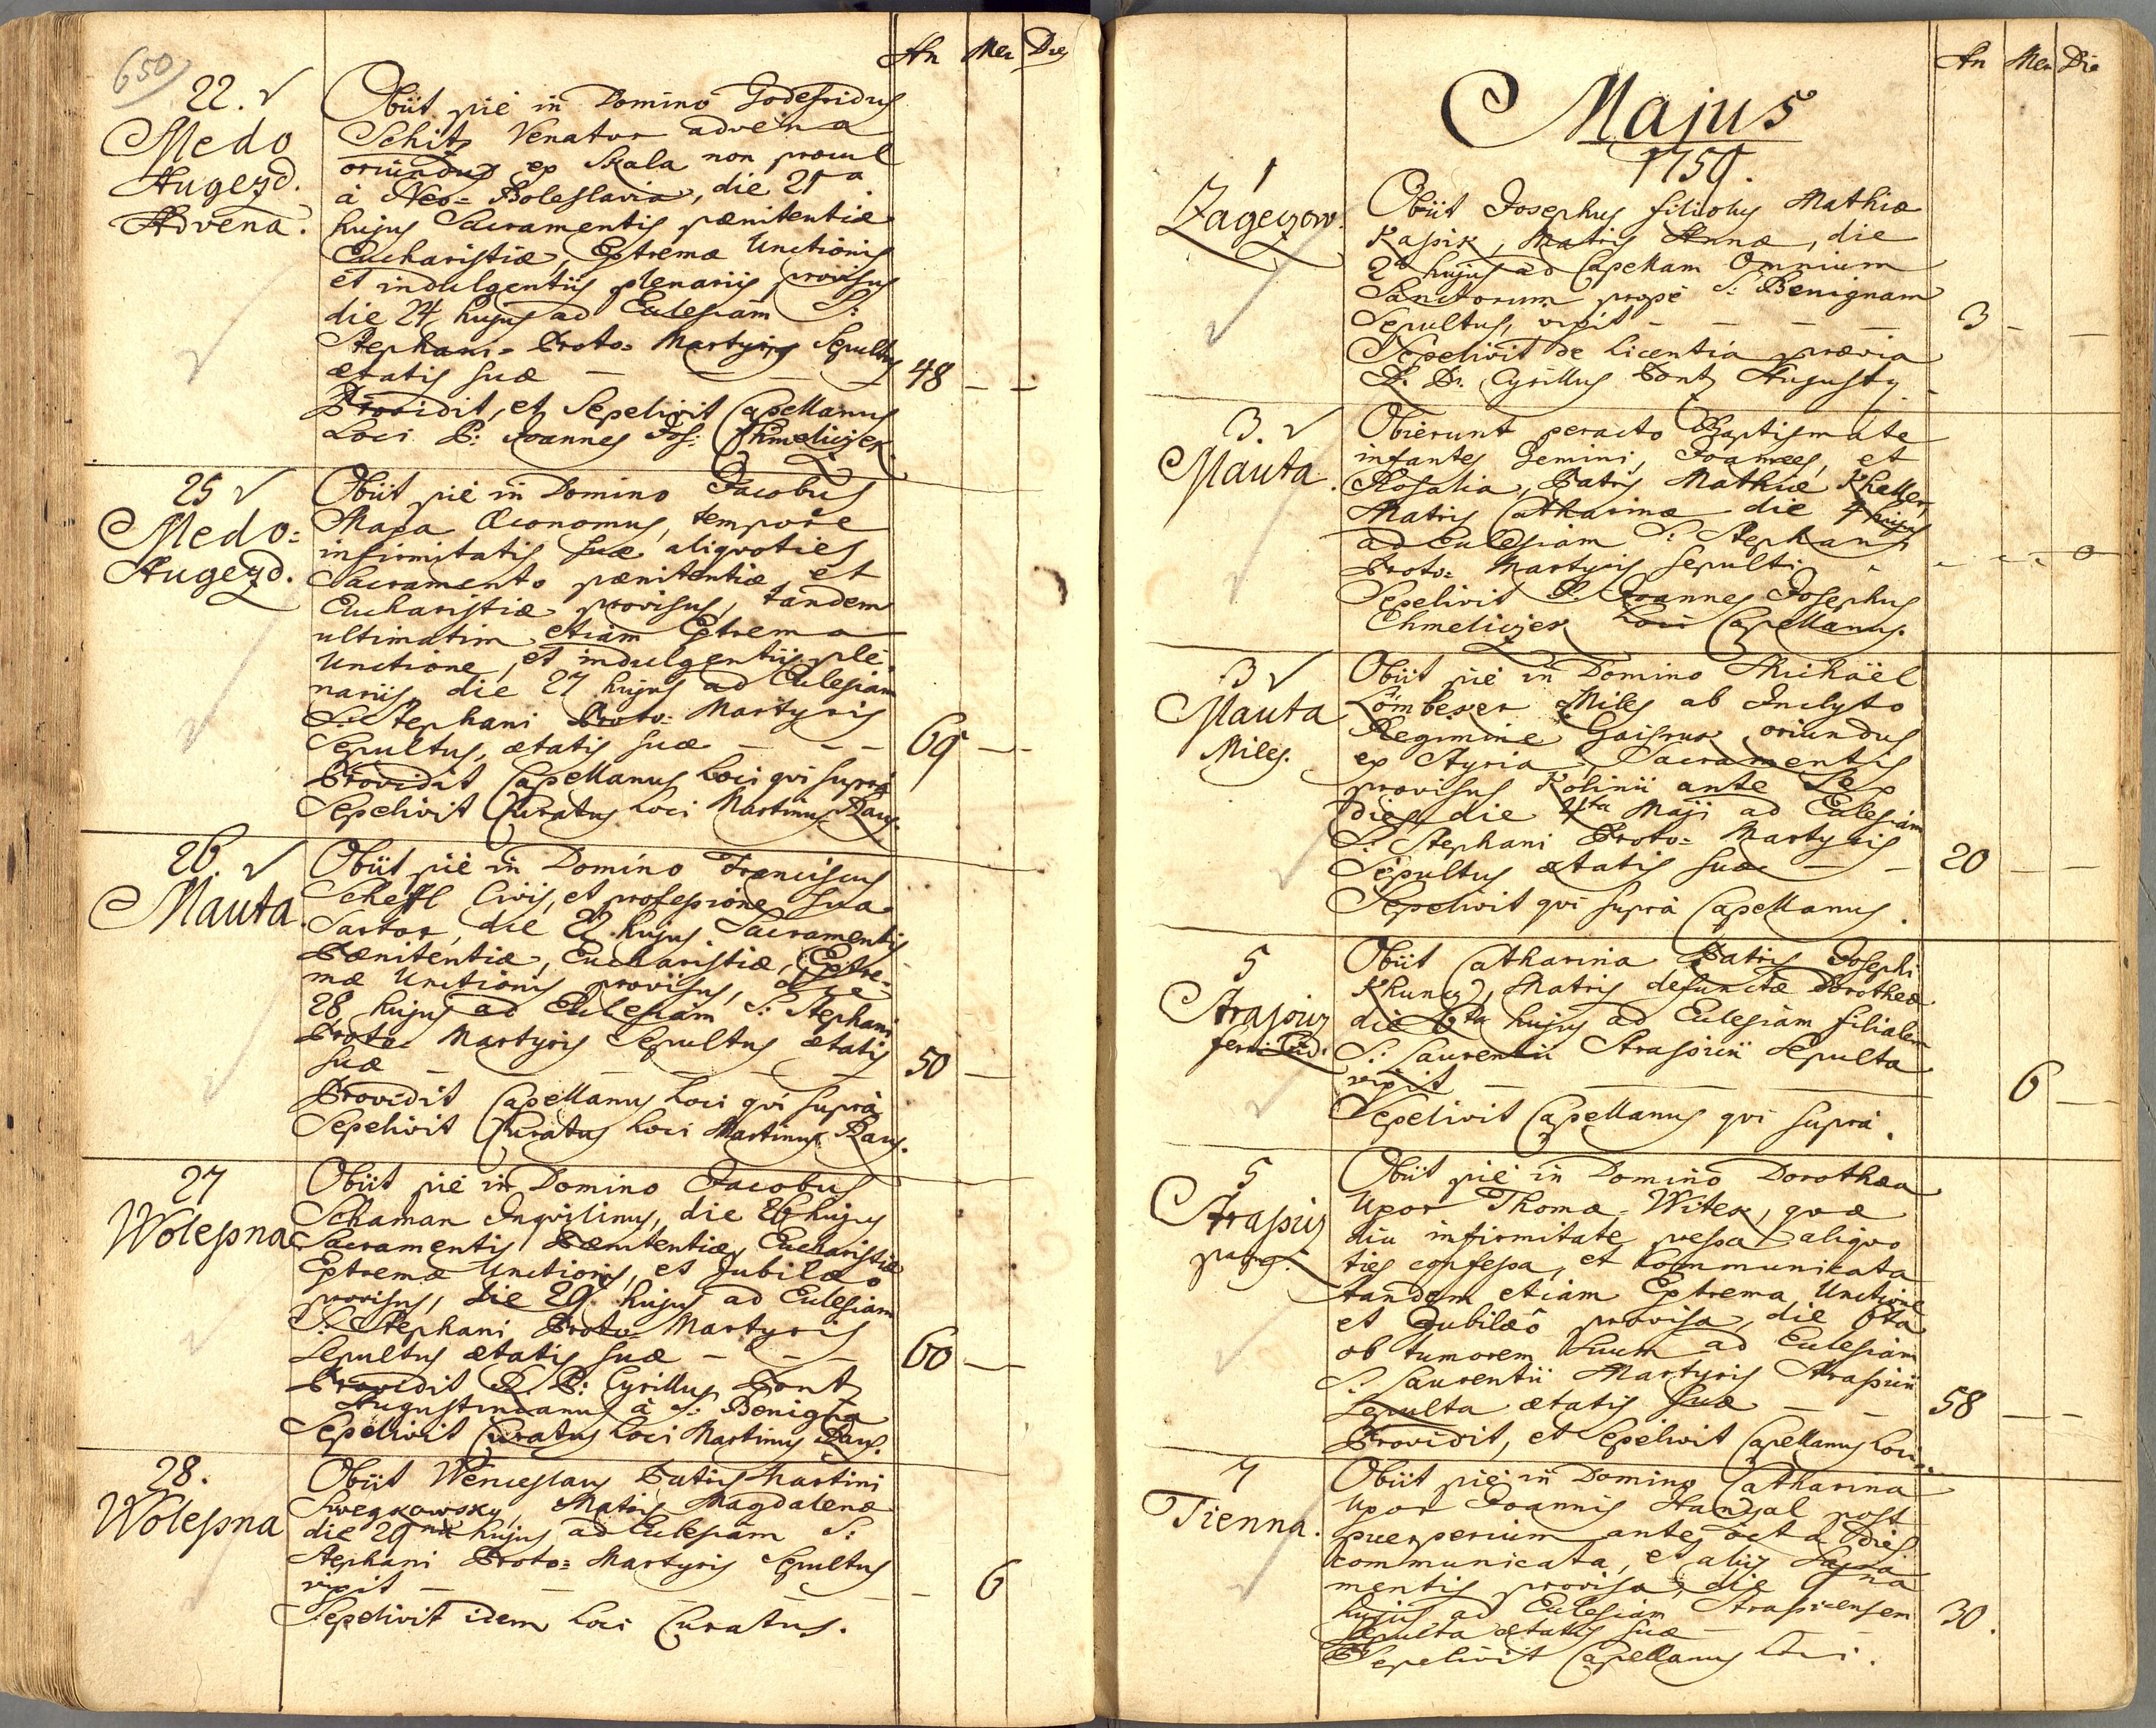 650
An Men Dies
22.
Medo
Augezd.
Advena.
Obiit pie in Domino Godefridus
Schitz Venator advena
oriundus ex Skala non procul
à Neo=Boleslavia, die 21a
hujus Sacramentis pænitentiæ
Eucharistiæ, Extremæ Unctionis
et indulgentiis plenariis provisus
die 24 hujus ad Ecclesiam S:
Stephani=Proto=Martyris Sepultus
ætatis suæ — — — — 48 — —
Providit, et Sepelivit Capellanus
Loci P: Joannes Jos: Chmeliczek
25
Medo=
Augezd.
Obiit pie in Domino Jacobus
Maxa Œconomus, tempore
infirmitatis suæ aliquoties
Sacramento pænitentiæ, et
Eucharistiæ provisus, tandem
ultimatim etiam Extrema
Unctione, et indulgentiis ple=
nariis, die 27 hujus ad Ecclesiam
S: Stephani Proto=Martyris
Sepultus, ætatis suæ — — — 69 — —
Providit Capellanus Loci qui supra
Sepelivit Curatus Loci Martinus Raus.
26.
Mauta.
Obiit pie in Domino Franciscus
Scheffl Civis, et professione sua
Sartor, die 22 hujus Sacramentis
Pænitentiæ, Eucharistiæ, Extre=
mæ Unctionis provisus, die
28 hujus ad Ecclesiam S: Stephani
Proto=Martyris Sepultus ætatis
suæ — — — — — 50 —
Providit Capellanus Loci qui supra
Sepelivit Curatus Loci Martinus Raus.
27
Wolessna
Obiit pie in Domino Jacobus
Schaman Inquilinus, die 26 hujus
Sacramentis Pænitentiæ, Eucharistiæ
Extremæ Unctionis, et Jubilæo
provisus, die 29 hujus ad Ecclesiam
S: Stephani Proto=Martyris
Sepultus ætatis suæ — — — 60 — —
Providit R. P: Cyrillus Pontz
Augustinianus à S: Benigna
Sepelivit Curatus Loci Martinus Raus.
28.
Wolessna
Obiit Wenceslaus Patris Martini
Swegkowsky, Matris Magdalenæ
die 29na hujus ad Ecclesiam S:
Stephani Proto=Martyris Sepultus
vixit — — — — — 6
Sepelivit idem Loci Curatus.
An Men Die
Majus
1759.
1
Zageczow
Obiit Josephus filiolus Mathiæ
Kassik, Matris Annæ, die
2a hujus ad Capellam Omnium
Sanctorum prope S: Benignam
Sepultus, vixit — — — — 3 — —
Sepelivit de Licentia prævia
P. Dr. Cyrillus Pontz Augusty
3.
Mauta.
Obierunt peracto Baptismate
infantes Gemini, Joannes, et
Rosalia, Patris Mathiæ Kheller,
Matris Catharinæ die 4 hujus
ad Ecclesiam S: Stephani
Proto=Martyris sepulti
Sepelivit P. Joannes Josephus
Chmeliczek Loci Capellanus.
3
Mauta
Miles.
Obiit pie in Domino Michäel
Lömbeser Miles ab Inclyto
Regimine Gaisruk oriundus
ex Styria, Sacramentis
provisus Kolinii ante Sex
dies, die 4ta Maji ad Ecclesiam
S: Stephani Proto=Martyris
Sepultus ætatis suæ — — 20 — —
Sepelivit qui supra Capellanus.
5
Strassiz
Obiit Catharina Patris Josephi
Khuncz, Matris defunctæ Dorotheæ
die 6ta hujus ad Ecclesiam filialem
S: Laurentii Strassicii Sepulta
vixit — — — 6 —
Sepelivit Capellanus qui supra.
5
Strassiz
Obiit pie in Domino Dorothæa
Uxor Thomæ Witek, quæ
diu infirmitate pressa aliquo
ties confessa, et Communicata
tandem etiam Extrema Unctione
et Jubilæo provisa, die 6ta
ob tumorem suum ad Ecclesiam
S: Laurentii Martyris Strassicii
Sepulta ætatis suæ — — 58 — —
Providit, et Sepelivit Capellanus Loci
7
Tienna.
Obiit pie in Domino Catharina
Uxor Joannis Handzal post
puerperium ante octo dies
communicata, et aliis Sacra
mentis provisa, die 9na
hujus ad Ecclesiam Strassicensem
Sepulta ætatis suæ — 30.
Sepelivit Capellanus Loci.